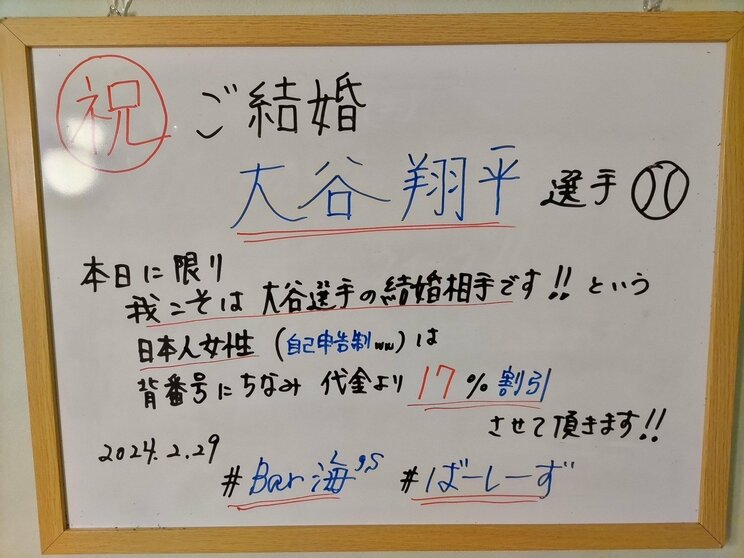 祝 ご結婚
大谷翔平 選手
本日に限り
我こそは 大谷選手の結婚相手です!! という
日本人女性 (自己申告制ww)は
背番号にちなみ 代金より 17% 割引
させて頂きます!!
2024.2.29
#Bar海's #ばーしーず